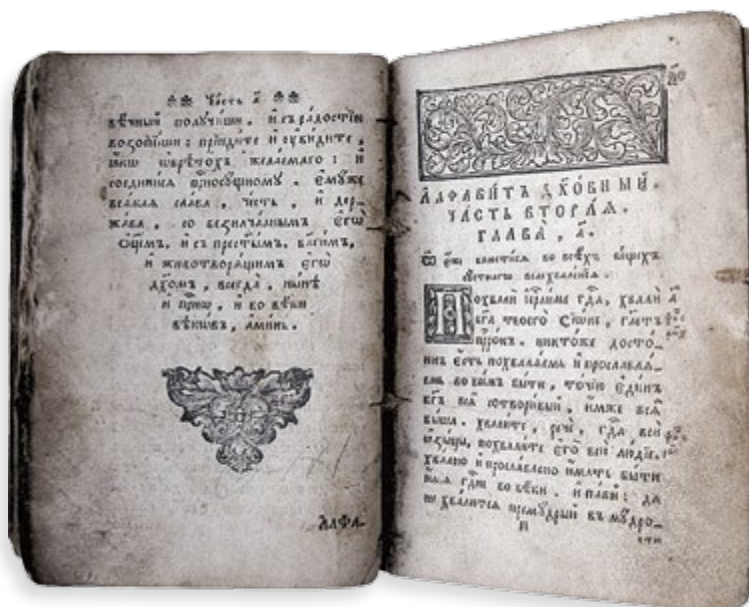 Часть а҃
вѣ́чный полꙋчиши, и҆ съ ра́достїю
возопїе́ши: прїиди́те и҆ ᲂу҆ви́дите,
ꙗ҆́кѡ ѡ҆брѣто́хъ жела́емаго: и҆
соедини́хся присносꙋ́щномꙋ. є҆мꙋ́же
всѧ́каѧ сла́ва, че́сть, и҆ дер-
жа́ва, со безнача́льнымъ є҆гѡ̀
Ѻ҆ц҃е́мъ, и҆ съ прест҃ы́мъ, бл҃ги́мъ,
и҆ животворѧ́щимъ є҆гѡ̀
дх҃омъ, всегда̀, ны́нѣ
и҆ при́снѡ, и҆ во вѣ́ки
вѣкѡ́въ, а҆ми́нь.
А҆лфа-
А҆ЛФАВИ́ТЪ ДХ҃О́ВНЫЙ.
ЧА́СТЬ ВТОРА́Ѧ.
ГЛАВА̀, а҃.
Похвалѝ і҆ерⷭ҇ли́ме гдⷭ҇а, хвалѝ
бг҃а твоего̀ Сїѡ́не, гл҃етъ
прⷪ҇ро́къ. никто́же досто-
инъ є҆́сть похвалѧ́емь и҆ прославлѧ-
емь во все́мъ бы́ти, то́чїю є҆ди́нъ
бг҃ъ всѧ̑ сотвори́вый, и҆́мже всѧ̑
бы́ша. хвали́те, речѐ, гдⷭ҇а всѝ
ꙗ҆зы́цы, похвали́те є҆го̀ всѝ лю́дїе.
хва́лено и҆ просла́влено и҆́мать бы́ти
и҆́мѧ гдⷭ҇не во вѣ́ки. и҆ па́ки: да
не хва́литсѧ премꙋ́дрый въ мꙋ́дро-
сти